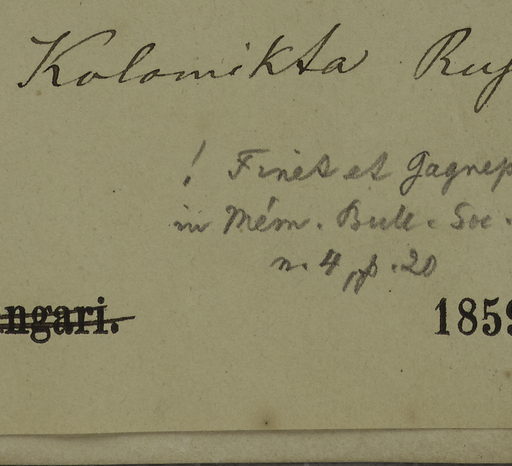 Kolomikta Rup
! Finet et Gagnep
in Mém. Bull. Soc.
n. 4, p. 20
ngari. 1859